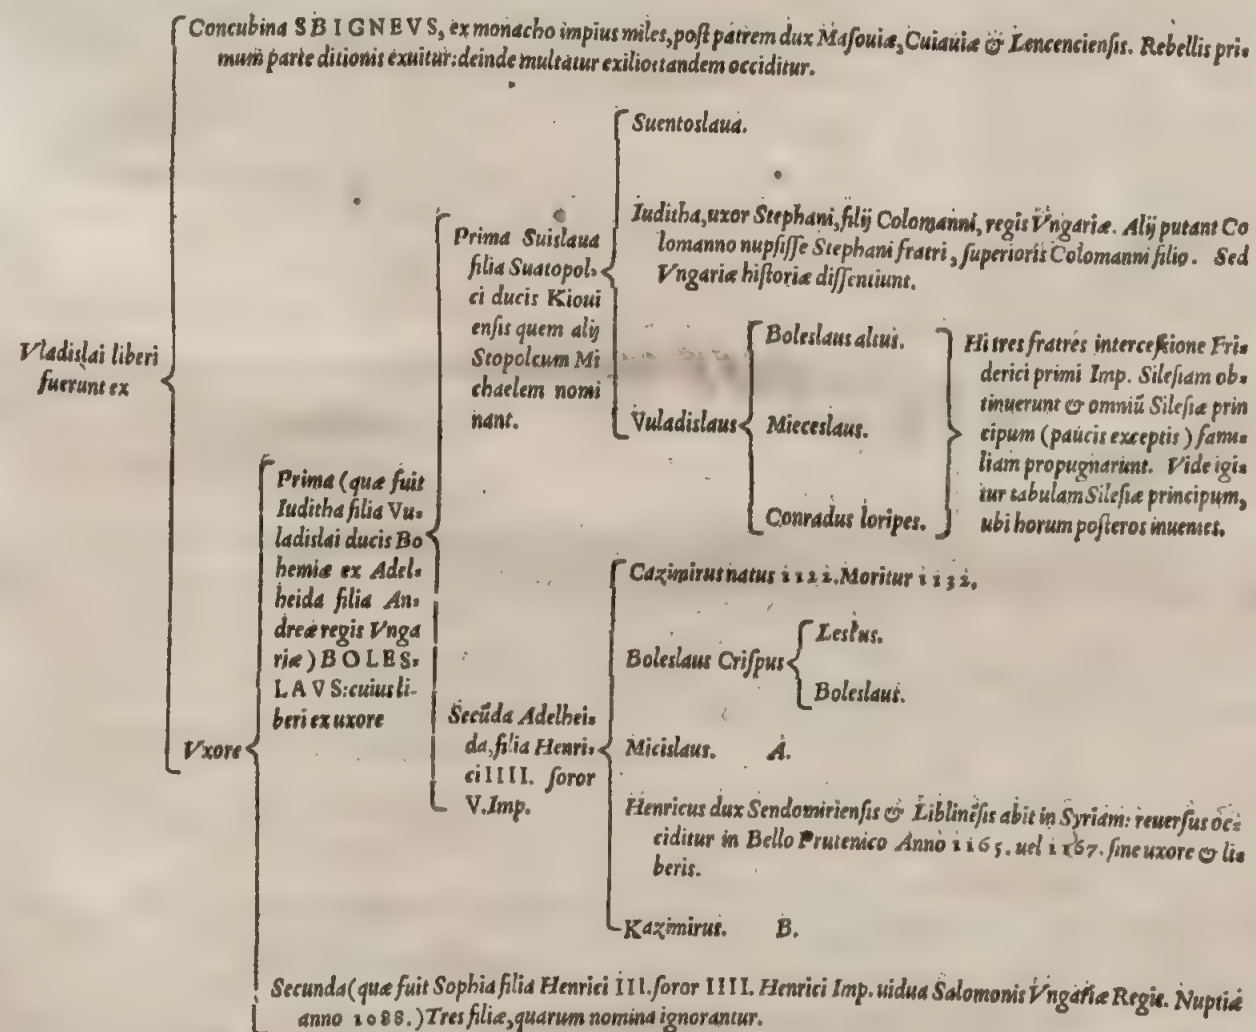 Concubina SBIGNEVS, ex monacho impius miles, poſt patrem dux Maſouiæ, Cuiauiæ & Lencencienſis. Rebellis pri-
mum parte ditionis exuitur: deinde multatur exilio: tandem occiditur.
Vladislai liberi
fuerunt ex
Vxore
Prima (quæ fuit
Iuditha filia Vu-
ladislai ducis Bo
hemiæ ex Adel-
heida filia An-
dreæ regis Vnga
riæ) BOLES-
LAVS: cuius li-
beri ex uxore
Prima Suislaua
filia Suatopol-
ci ducis Kioui
enſis quem alij
Stopolcum Mi
chaelem nomi
nant.
Suentoslaua.
Iuditha, uxor Stephani, filij Colomanni, regis Vngariæ. Alij putant Co
lomanno nupſiſſe Stephani fratri, ſuperioris Colomanni filio. Sed
Vngariæ hiſtoriæ diſſentiunt.
Vuladislaus
Boleslaus altus.
Mieceslaus.
Conradus loripes.
Hi tres fratres interceſſione Fri-
derici primi Imp. Sileſiam ob-
tinuerunt & omniũ Sileſiæ prin
cipum (paucis exceptis) famu-
liam propugnarunt. Vide igi-
tur tabulam Sileſiæ principum,
ubi horum poſteros inuenies.
Secũda Adelhei-
da, filia Henri-
ci IIII. ſoror
V. Imp.
Cazimirus natus 1122. Moritur 1132.
Boleslaus Criſpus
Leſtus.
Boleslaus.
Micislaus. A.
Henricus dux Sendomirienſis & Liblinẽſis abit in Syriam: reuerſus oc-
ciditur in Bello Prutenico Anno 1165. uel 1167. ſine uxore & li-
beris.
Kazimirus. B.
Secunda (quæ fuit Sophia filia Henrici III. ſoror IIII. Henrici Imp. uidua Salomonis Vngariæ Regis. Nuptiæ
anno 1088.) Tres filiæ, quarum nomina ignorantur.